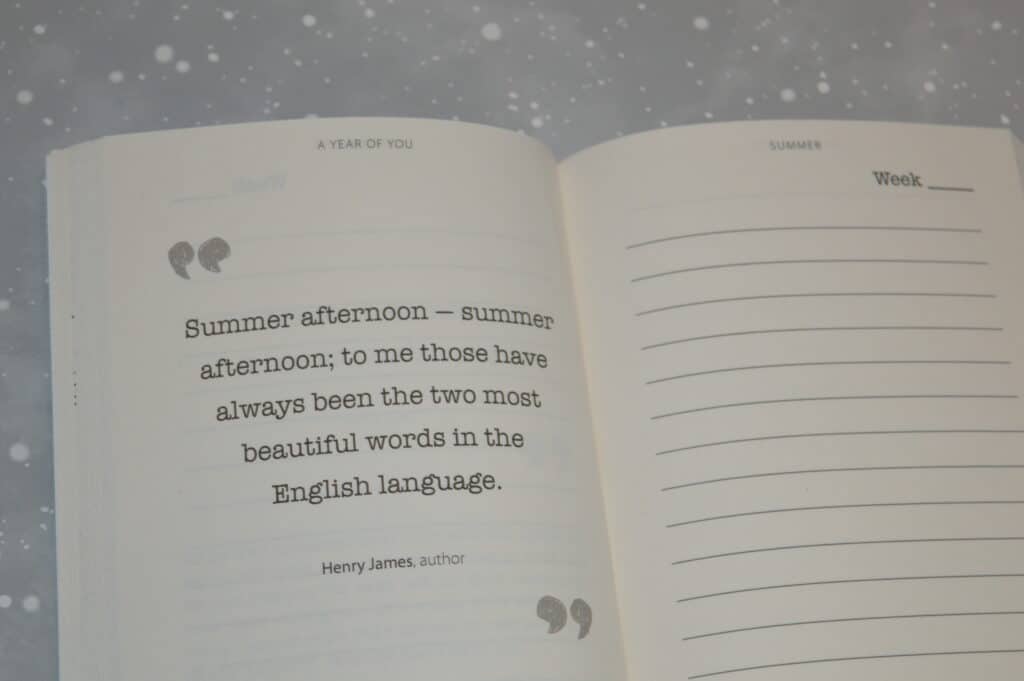 A YEAR OF YOU
Summer afternoon — summer
afternoon; to me those have
always been the two most
beautiful words in the
English language.
Henry James, author
SUMMER
Week ____